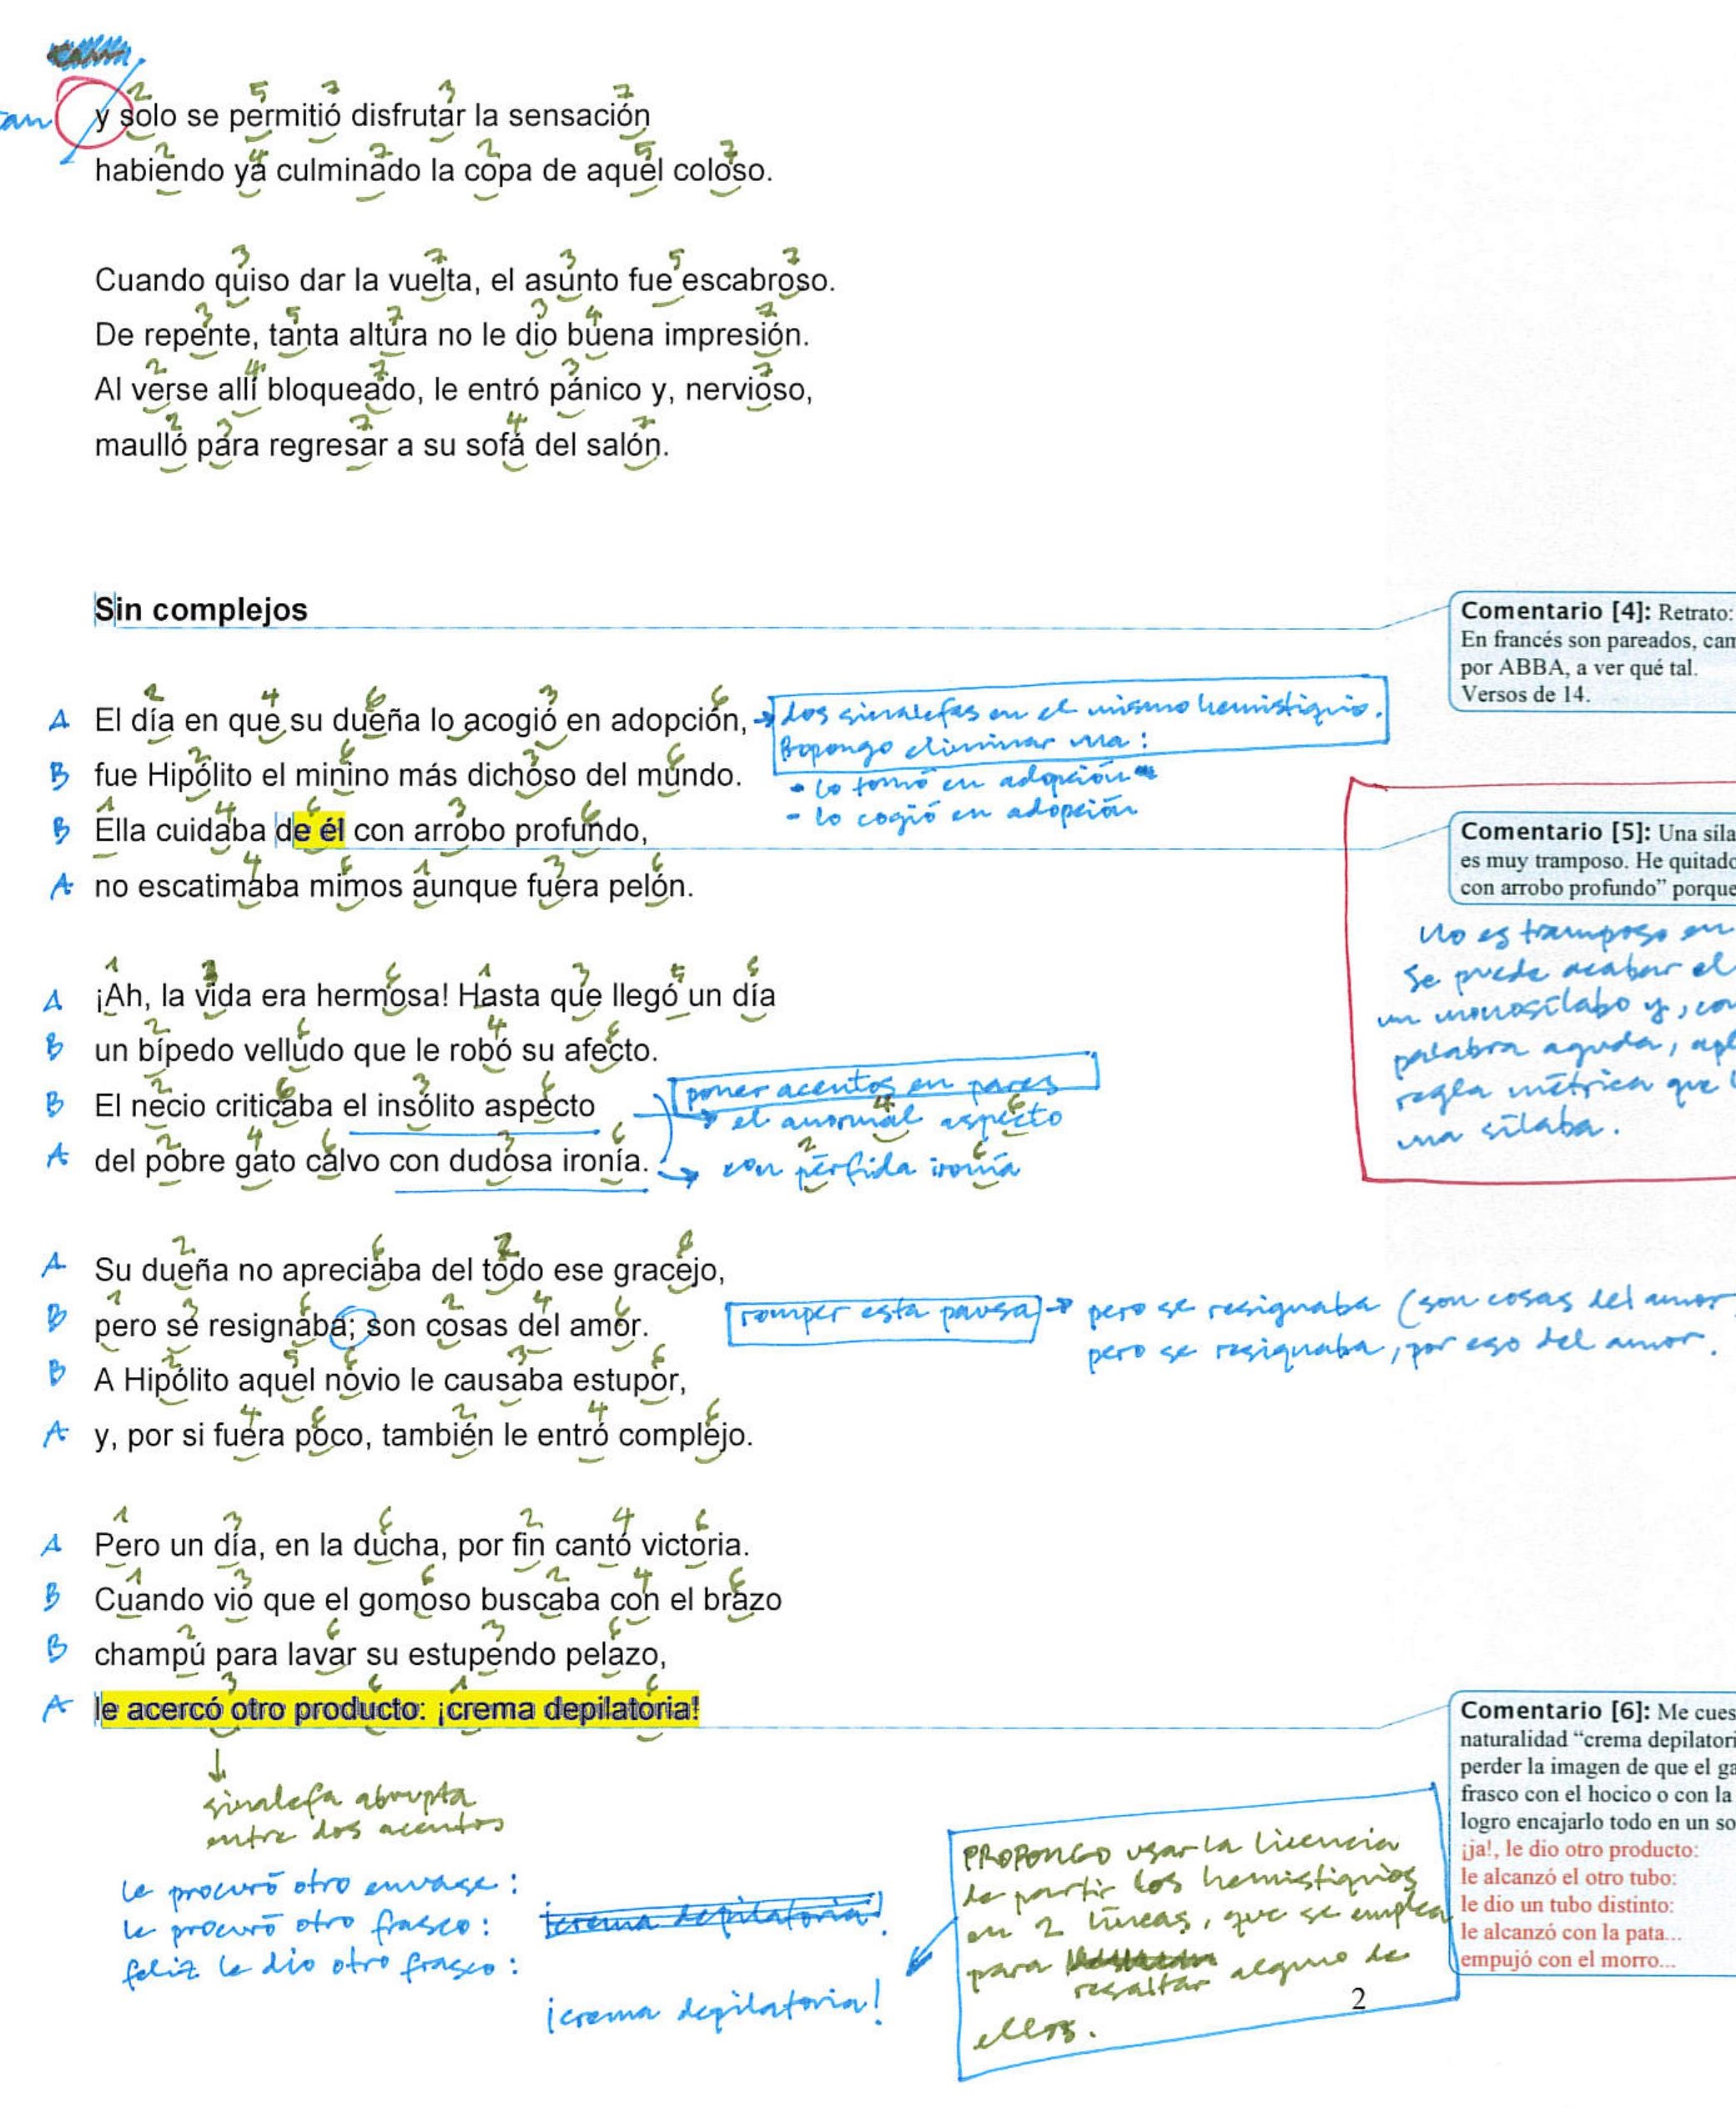 tan
y solo se permitió disfrutar la sensación
habiendo ya culminado la copa de aquel coloso.
Cuando quiso dar la vuelta, el asunto fue escabroso.
De repente, tanta altura no le dio buena impresión.
Al verse allí bloqueado, le entró pánico y, nervioso,
maulló para regresar a su sofá del salón.
Sin complejos
Comentario [4]: Retrato:
En francés son pareados, cam
por ABBA, a ver qué tal.
Versos de 14.
A El día en que su dueña lo acogió en adopción,
B fue Hipólito el minino más dichoso del mundo.
B Ella cuidaba de él con arrobo profundo,
A no escatimaba mimos aunque fuera pelón.
→ dos sinalefas en el mismo hemistiquio.
Propongo eliminar una:
- lo tomó en adopción
- lo cogió en adopción
Comentario [5]: Una síla
es muy tramposo. He quitado
con arrobo profundo” porque
No es tramposo en
Se puede acabar el
un monosílabo y, co
palabra aguda, apl
regla métrica que
una sílaba.
A ¡Ah, la vida era hermosa! Hasta que llegó un día
B un bípedo velludo que le robó su afecto.
B El necio criticaba el insólito aspecto
A del pobre gato calvo con dudosa ironía.
poner acentos en pares
→ el anormal aspecto
→ con pérfida ironía
A Su dueña no apreciaba del todo ese gracejo,
B pero se resignaba; son cosas del amor.
B A Hipólito aquel novio le causaba estupor,
A y, por si fuera poco, también le entró complejo.
romper esta pausa → pero se resignaba (son cosas del amor
pero se resignaba, por eso del amor.
A Pero un día, en la ducha, por fin cantó victoria.
B Cuando vio que el gomoso buscaba con el brazo
B champú para lavar su estupendo pelazo,
A le acercó otro producto: ¡crema depilatoria!
↓
sinalefa abrupta
entre dos acentos
le procuró otro envase:
le procuró otro frasco:
feliz le dio otro frasco:
¡crema depilatoria!
¡crema depilatoria!
PROPONGO usar la licencia
de partir los hemistiquios
en 2 líneas, que se emplea
para resaltar alguno de
ellos.
Comentario [6]: Me cues
naturalidad “crema depilatori
perder la imagen de que el ga
frasco con el hocico o con la
logro encajarlo todo en un so
¡ja!, le dio otro producto:
le alcanzó el otro tubo:
le dio un tubo distinto:
le alcanzó con la pata...
empujó con el morro...
2